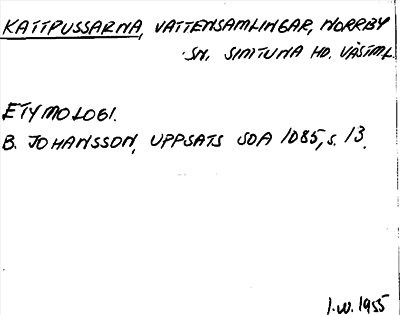 KATTPUSSARNA, VATTENSAMLINGAR, NORRBY
SN. SIMTUNA HD. VÄSTML.
ETYMOLOGI.
B. JOHANSSON, UPPSATS SOA 1085, S. 13.
I.W. 1955